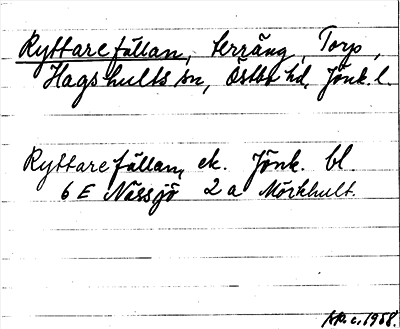 Ryttarefällan, terräng, Torp,
Hagshults sn, Östbo hd, Jönk. l.
Ryttarefällan, ek. Jönk. bl.
6 E Nässjö 2 a Mörkhult.
c. 1958.